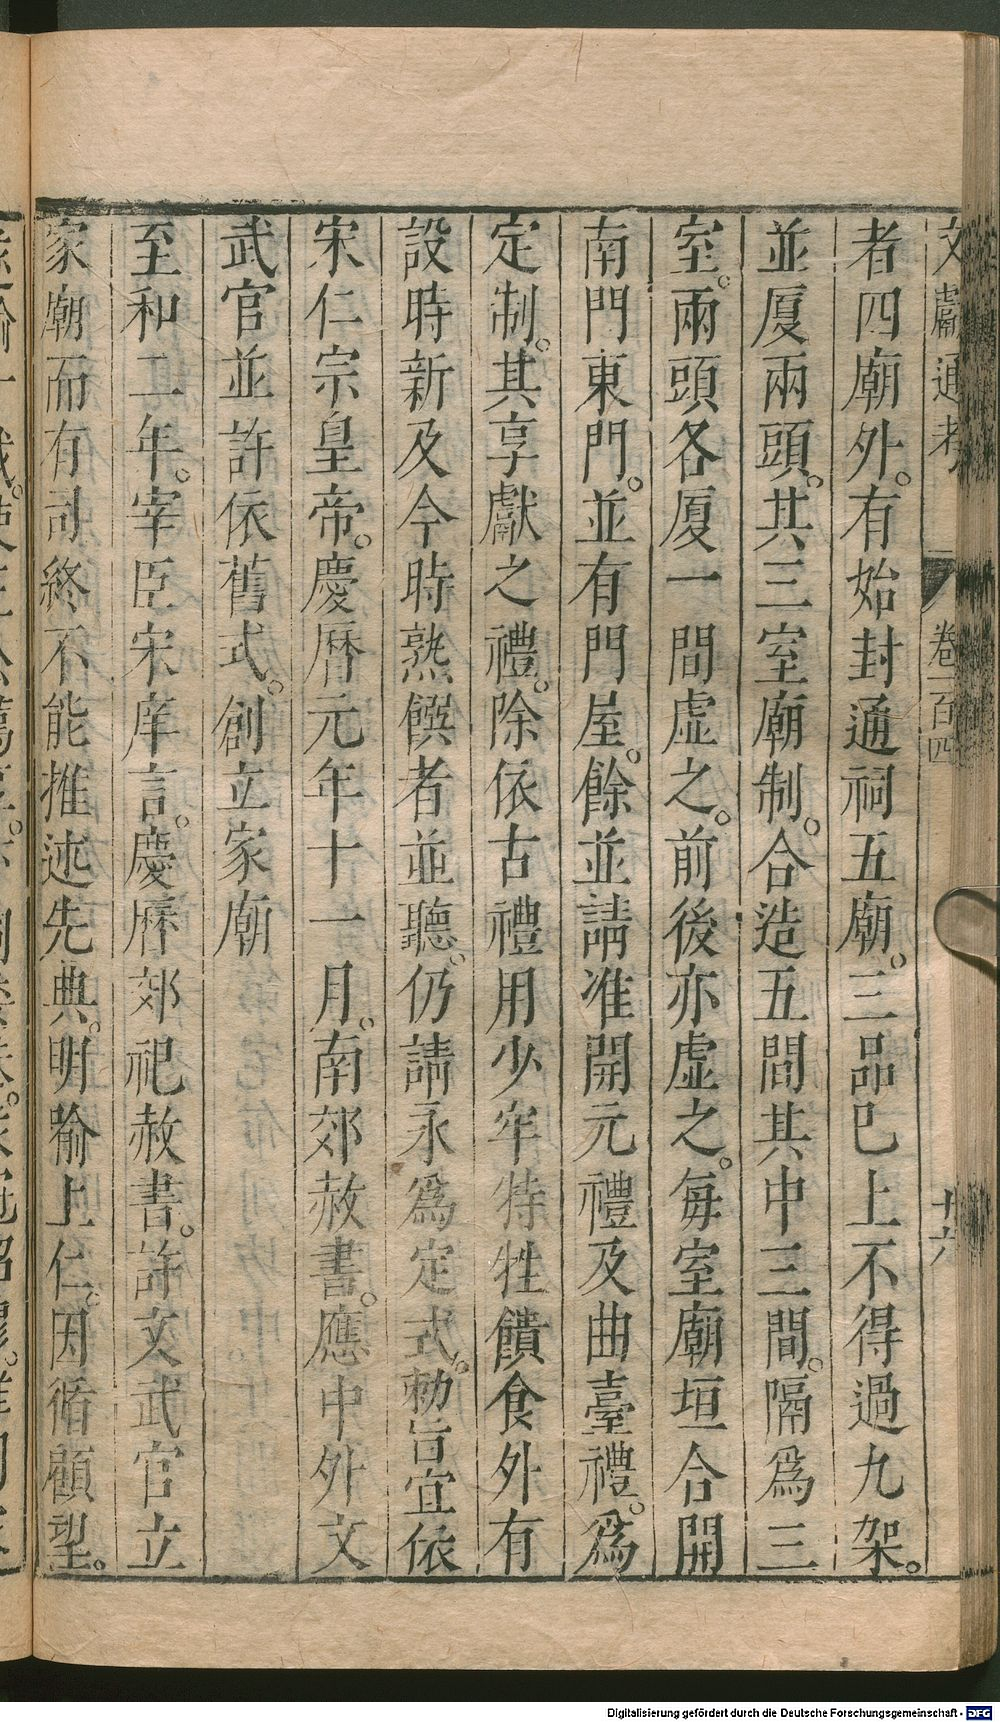 文獻通考 卷一百四 十六
者四廟外。有始封通祠五廟。三品已上不得過九架。
並厦兩頭。其三室廟制。合造五間其中三間。隔爲三
室。兩頭各厦一間虛之。前後亦虛之。每室廟垣合開
南門東門。並有門屋。餘並請准開元禮及曲臺禮。爲
定制。其享獻之禮。除依古禮用少牢特牲饋食外有
設時新及今時熟饌者並聽。仍請永爲定式。勑旨宜依
宋仁宗皇帝。慶曆元年十一月。南郊赦書。應中外文
武官並許依舊式。創立家廟
至和二年。宰臣宋庠言。慶曆郊祀赦書。許文武官立
家廟而有司終不能推述先典。明諭上仁。因循顧望。
Digitalisierung gefördert durch die Deutsche Forschungsgemeinschaft - DFG